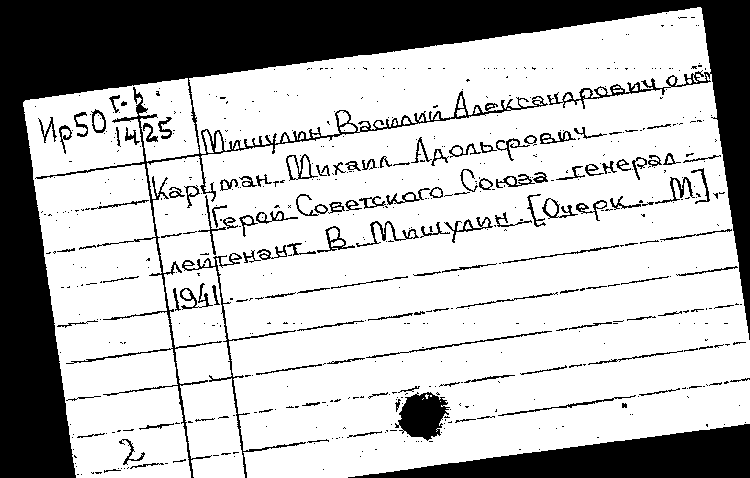 Ир50 Г-2
14/25
Мишулин, Василий Александрович, о нём
Карцман, Михаил Адольфович
Герой Советского Союза генерал-
лейтенант В. Мишулин. [Очерк. М.],
1941
2